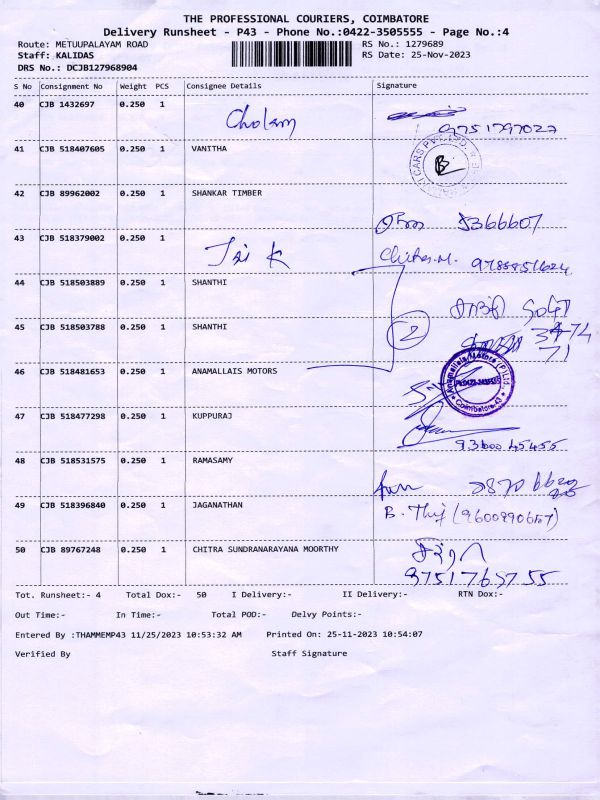 THE PROFESSIONAL COURIERS, COIMBATORE
Delivery Runsheet - P43 - Phone No.:0422-3505555 - Page No.:4
Route: METUUPALAYAM ROAD
RS No.: 1279689
Staff: KALIDAS
RS Date: 25-Nov-2023
DRS No.: DCJB127968904
S No Consignment No Weight PCS Consignee Details Signature
40 CJB 1432697 0.250 1 Cholam
9751797027
41 CJB 518407605 0.250 1 VANITHA
42 CJB 89962002 0.250 1 SHANKAR TIMBER
43 CJB 518379002 0.250 1 Jai K
44 CJB 518503889 0.250 1 SHANTHI
2
45 CJB 518503788 0.250 1 SHANTHI
71
46 CJB 518481653 0.250 1 ANAMALLAIS MOTORS
Coimbatore-43
47 CJB 518477298 0.250 1 KUPPURAJ
93600 45455
48 CJB 518531575 0.250 1 RAMASAMY
49 CJB 518396840 0.250 1 JAGANATHAN
50 CJB 89767248 0.250 1 CHITRA SUNDRANARAYANA MOORTHY
Tot. Runsheet:- 4 Total Dox:- 50 I Delivery:- II Delivery:- RTN Dox:-
Out Time:- In Time:- Total POD:- Delvy Points:-
Entered By :THAMMEMP43 11/25/2023 10:53:32 AM Printed On: 25-11-2023 10:54:07
Verified By Staff Signature